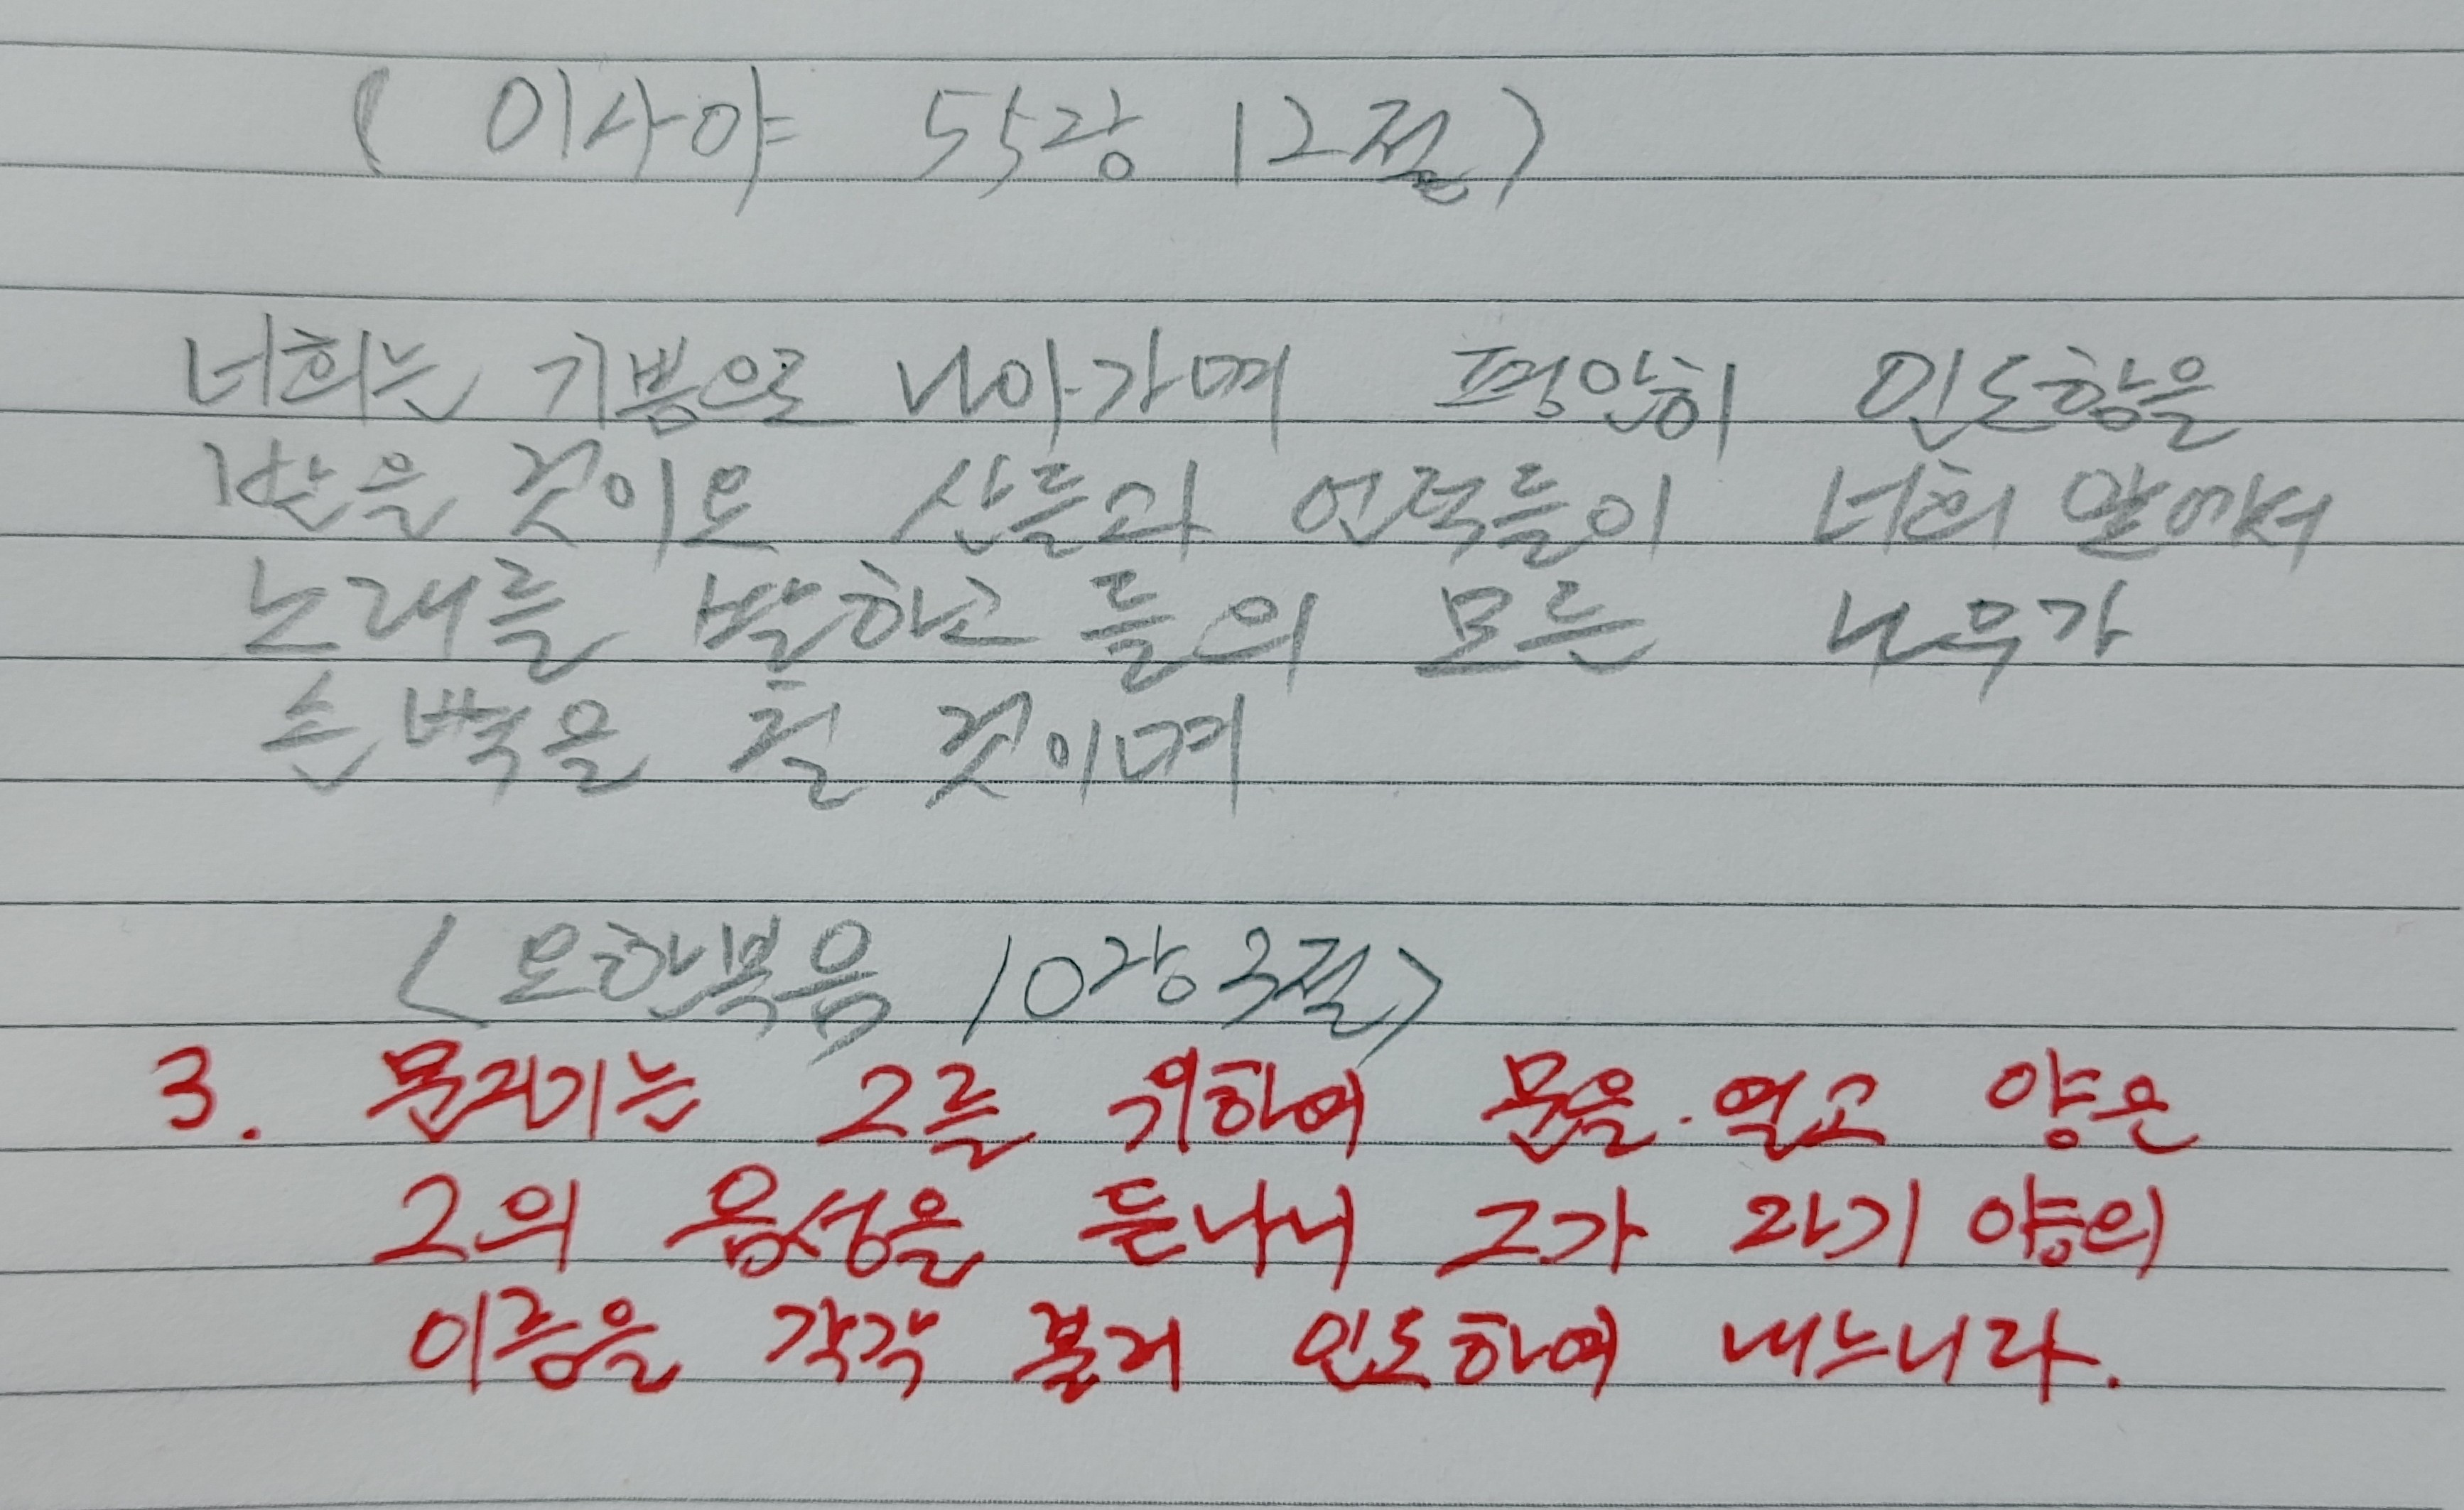 ( 이사야 55장 12절 )
너희는 기쁨으로 나아가며 평안히 인도함을
받을 것이요 산들과 언덕들이 너희 앞에서
노래를 발하고 들의 모든 나무가
손벽을 칠 것이며
< 요한복음 10장 3절 >
3. 문지기는 그를 위하여 문을 열고 양은
그의 음성을 듣나니 그가 자기 양의
이름을 각각 불러 인도하여 내느니라.